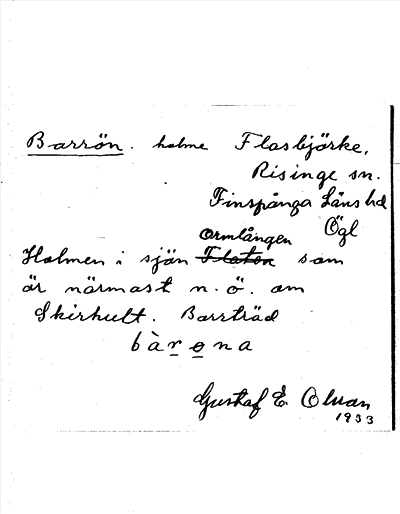 Barrön. holme Flasbjörke,
Risinge sn.
Finspånga Läns hd
Ögl
Ormlången
Holmen i sjön Flaten som
är närmast n.ö. om
Skirhult. Barrträd
bàrona
Gustaf E. Olsson
1933